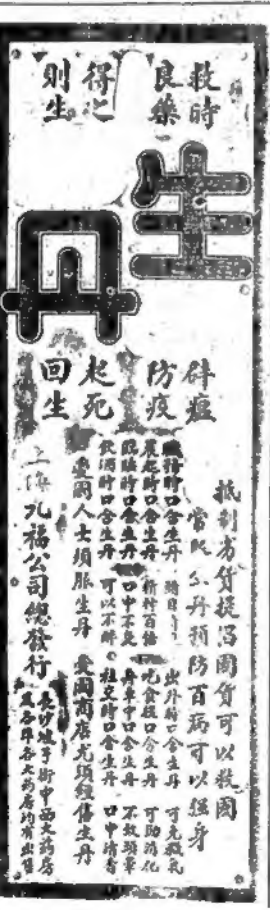 救時
良藥
得之
則生
生丹
辟瘟
防疫
起死
回生
抵制劣貨提倡國貨可以救國
常服生丹預防百病可以強身
職務時口含生丹 出外時口含生丹 可免穢氣
晨起時口含生丹 精神百倍 吃食後口含生丹 可助消化
臨睡時口含生丹 口中不臭 舟車中口含生丹 不致頭暈
飲酒時口含生丹 可以不醉 社交時口含生丹 口中清香
愛國人士須服生丹 愛國商店尤須經售生丹
上海九福公司總發行
長沙坡子街中西大藥房
及各埠各大药房均有出售